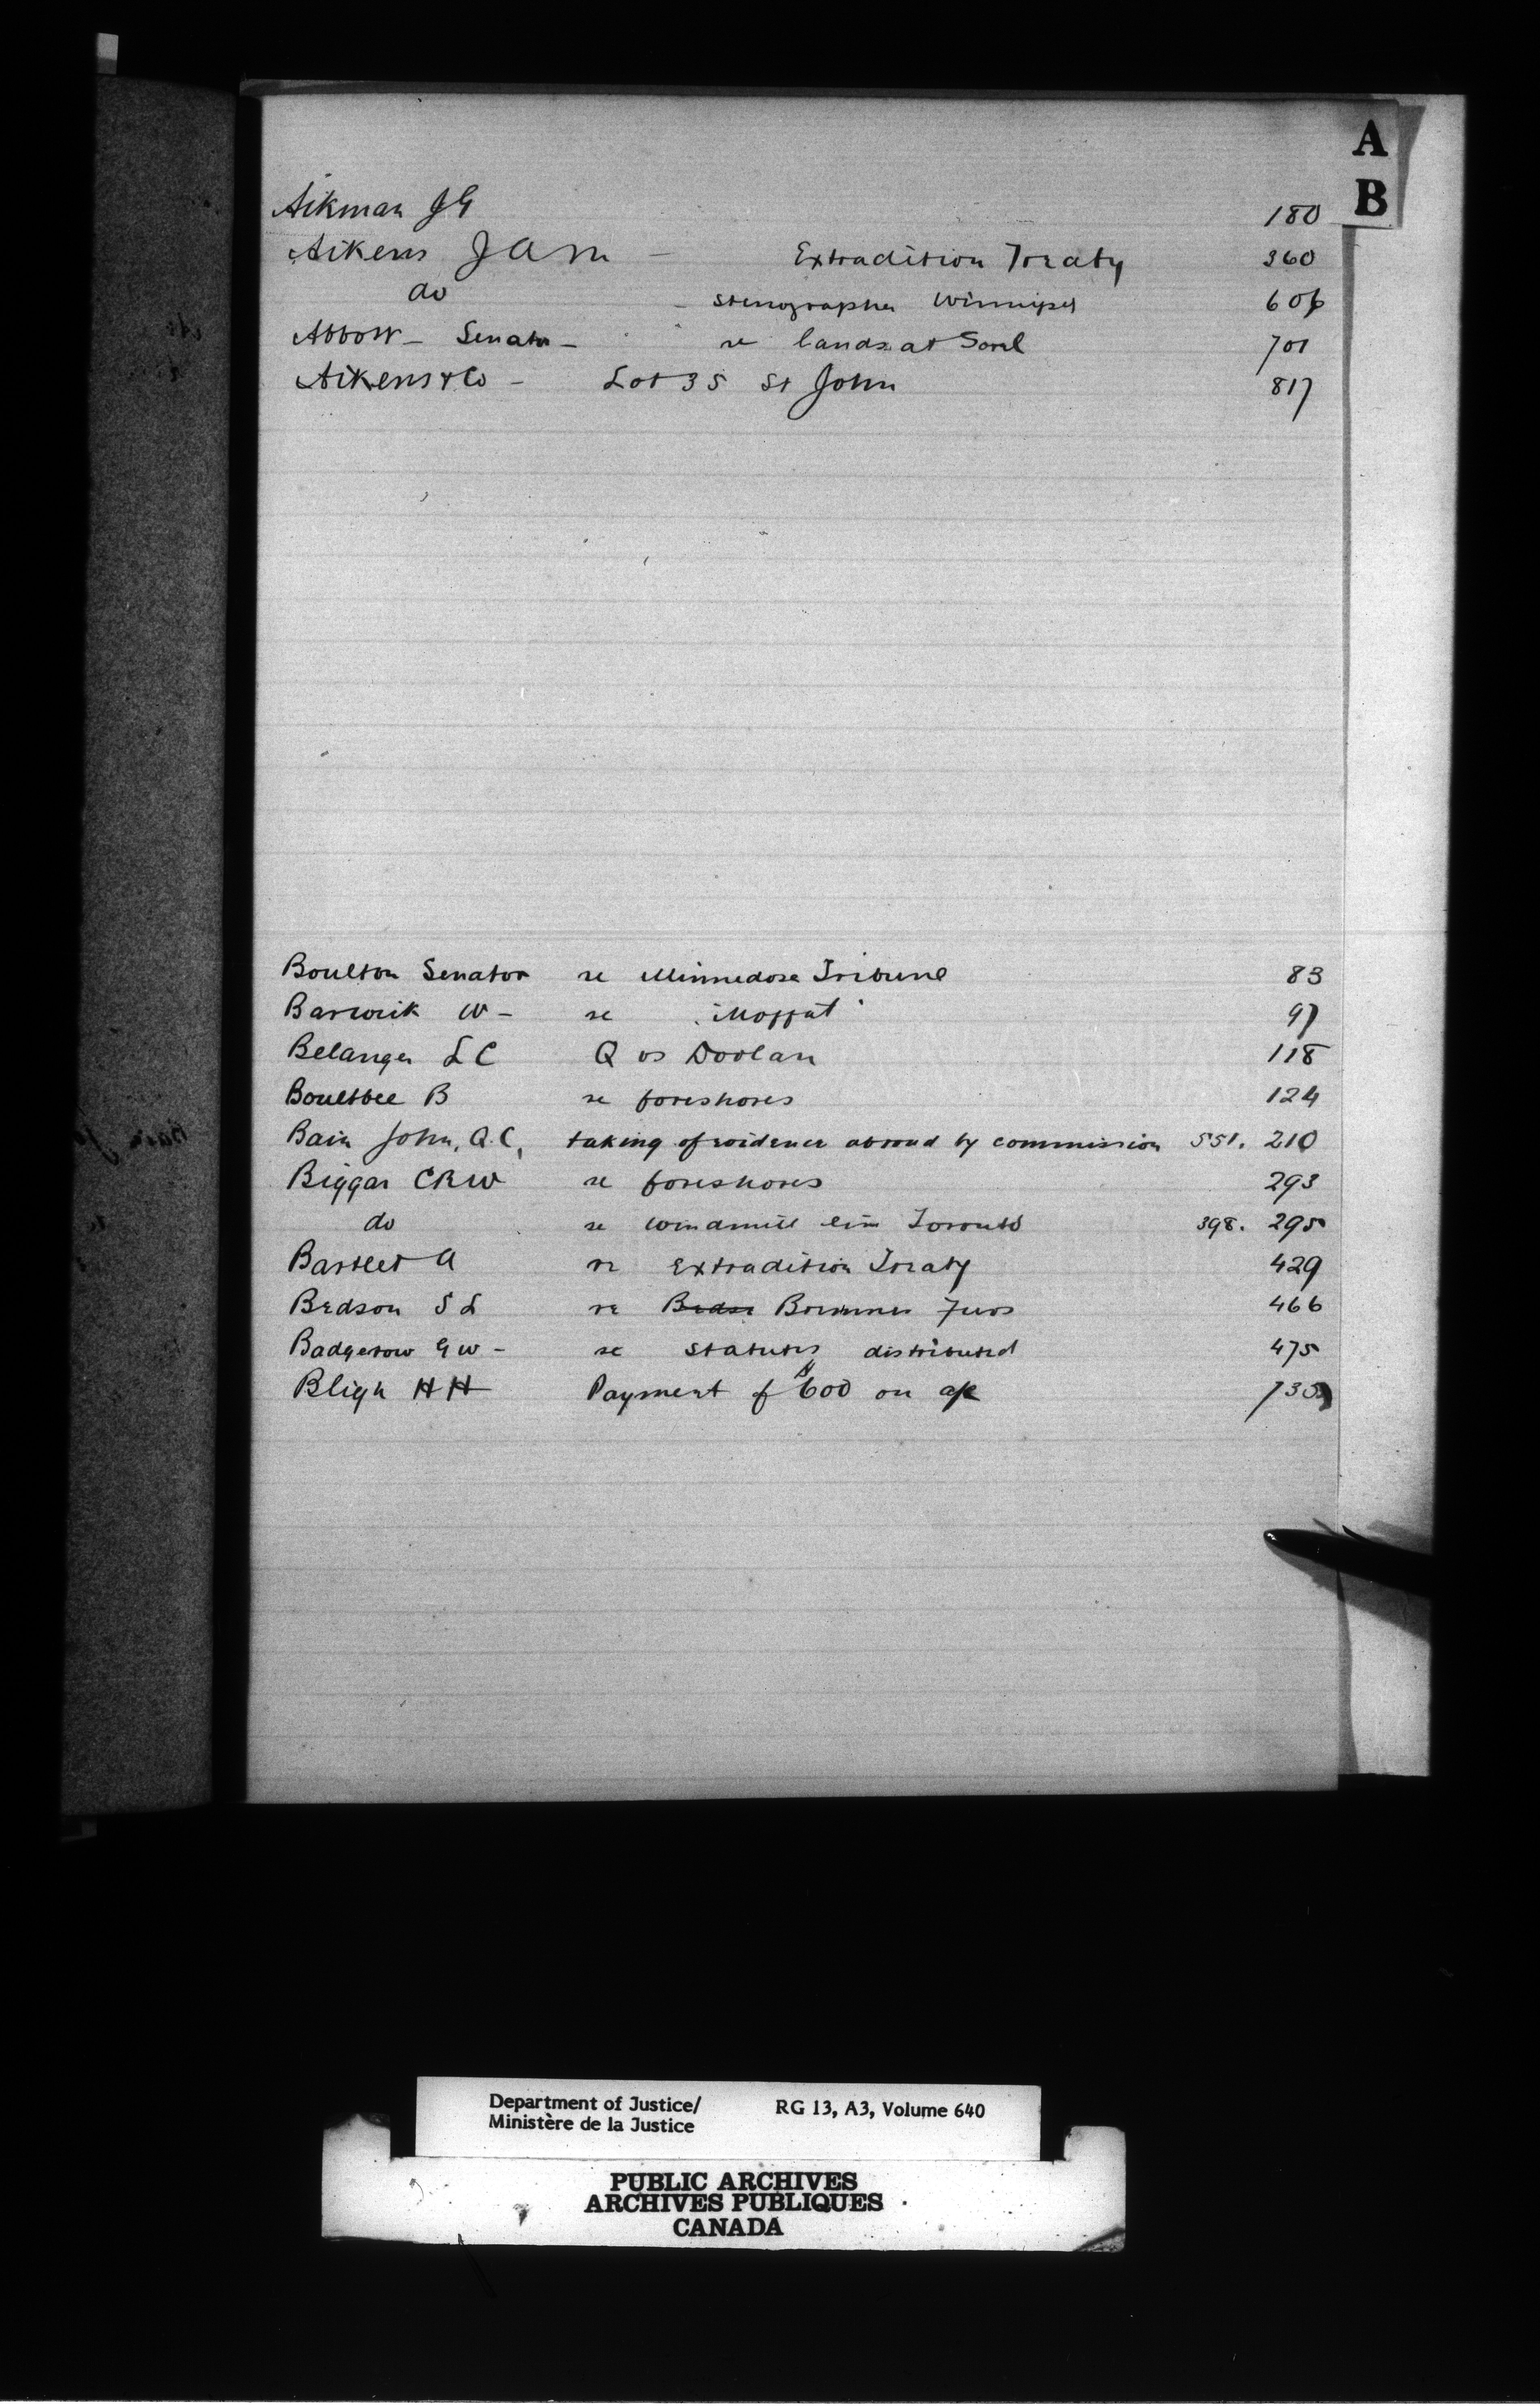 A
B
Aikman JG 180
Aikens JAM - Extradition Treaty 360
do - stenographer Winnipeg 606
Abbott - Senator - re lands at Sorel 701
Aikens & Co - Lot 35 St John 817
Boulton Senator re Minnedosa Tribune 83
Barwick W - re Moffat 97
Belanger L C Q vs Doolan 118
Boultbee B re foreshores 124
Bain John, Q.C, taking of evidence abroad by commission 551. 210
Biggar CRW re foreshores 293
do re windmill line Toronto 398. 295
Bartlet A re Extradition Treaty 429
Bedson S L re Bremner Furs 466
Badgerow G W - re statutes distributed 475
Bligh HH Payment of $600 on a/c 735
Department of Justice/ RG 13, A3, Volume 640
Ministère de la Justice
PUBLIC ARCHIVES
ARCHIVES PUBLIQUES
CANADA